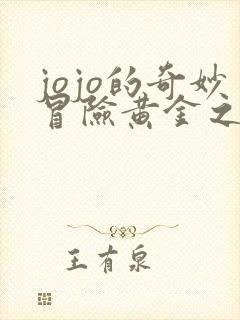 jojo的奇妙
冒險黄金之
王有泉